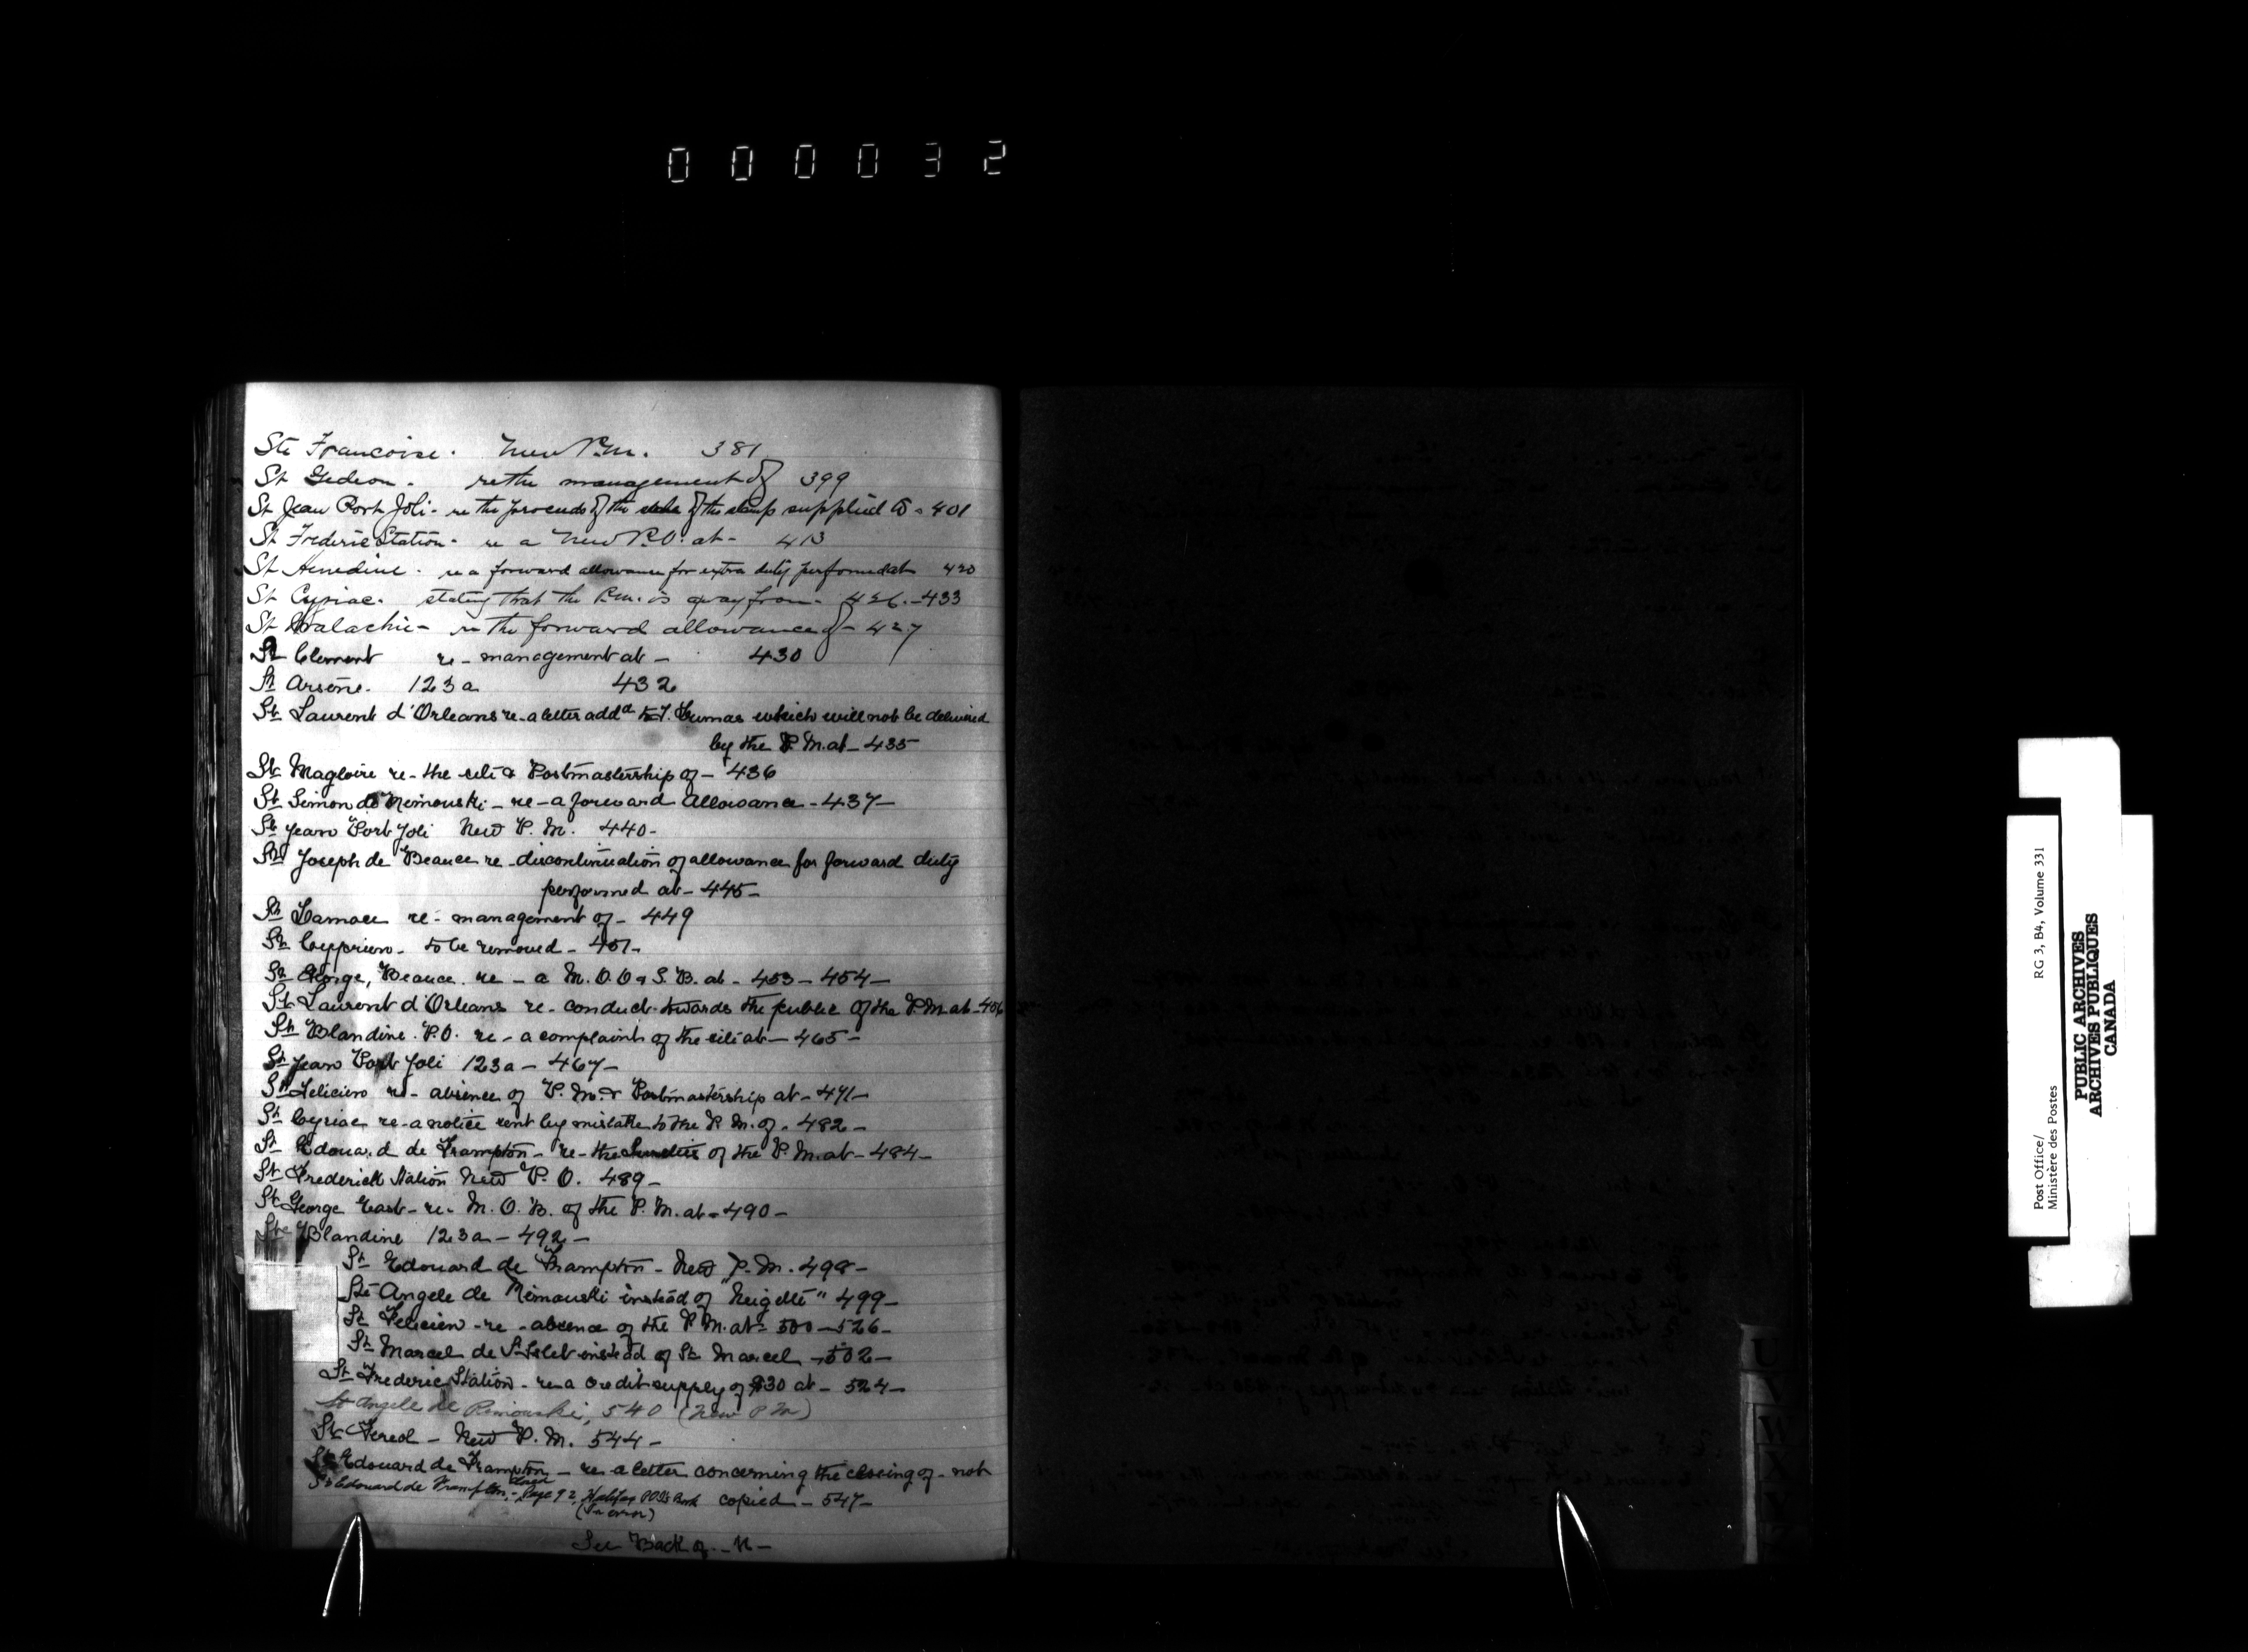 000032
Ste Francoise. New P.M. 381
St Gedeon. re the management of 399
St Jean Port Joli - re the proceeds of the sale of the stamp supplied to - 401
St Frederic Station - re a New P.O. at - 413
St Henedine. re a forward allowance for extra duty performed at 420
St Cyriac. stating that the P.M. is away from - 426 - 433
St Malachie - re the forward allowance of - 427
St Clement re - management at - 430
St Arsene. 123a 432
St Laurent d'Orleans re - a letter addd to which will not be delivered
by the P.M. at - 435
St Magloire re - the site & Postmastership of - 436
St Simon de Rimouski - re - a forward allowance - 437 -
St Jean Port Joli New P.M. 440 -
St Joseph de Beauce re - discontinuation of allowance for forward duty
performed at - 445 -
St Damase re - management of - 449
St Cyprien - to be removed - 451 -
St George, Beauce re - a M.O.O & S.B. at - 453 - 454 -
St Laurent d'Orleans re - conduct towards the public of the P.M. at - 456
St Blandine P.O. re - a complaint of the site at - 465 -
St Jean Port Joli 123a - 467 -
St Felicien re - absence of P.M. & Postmastership at - 471 -
St Cyriac re - a notice sent by mistake to the P.M. of - 482 -
St Edouard de Frampton - re - the Sureties of the P.M. at - 484 -
St Frederick Station New P.O. 489 -
St George East - re - M.O.B. of the P.M. at - 490 -
Ste Blandine 123a - 492 -
St Edouard de Frampton - New P.M. 498 -
Ste Angele de Rimouski instead of "Neigette" 499 -
St Felicien - re - absence of the P.M. at - 500 - 526 -
St Marcel de L'Islet instead of St Marcel - 502 -
St Frederic Station - re a credit supply of $30 at - 524 -
St Angele de Rimouski, 540 (New PM)
St Fereol - New P.M. 544 -
St Edouard de Frampton - re - a letter concerning the closing of - not
St Edouard de Frampton, - closed Page 92, Halifax POI's Book copied - 547 -
(In error)
See Back of - N -
U
W
X
Y
Post Office/ RG 3, B4, Volume 331
Ministère des Postes
PUBLIC ARCHIVES
ARCHIVES PUBLIQUES
CANADA